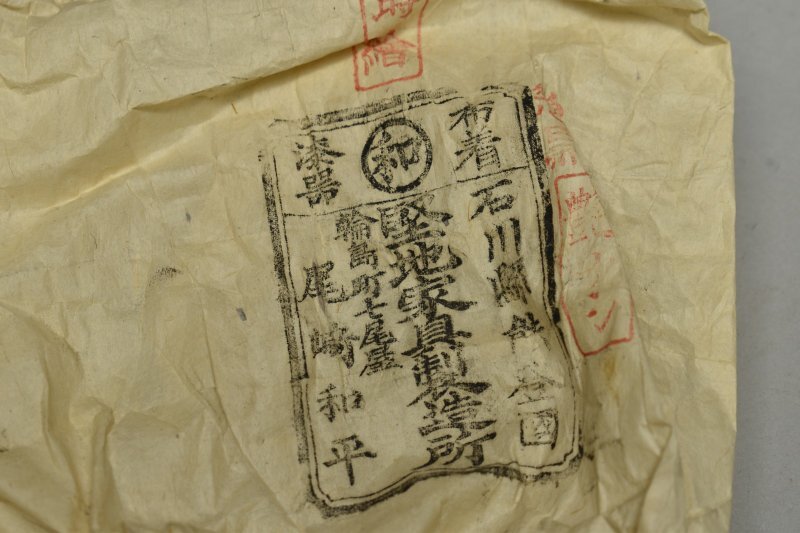 布着
和
漆器
石川縣能登國
堅地家具製造所
輪島町七尾屋
尾崎和平
蒔繪